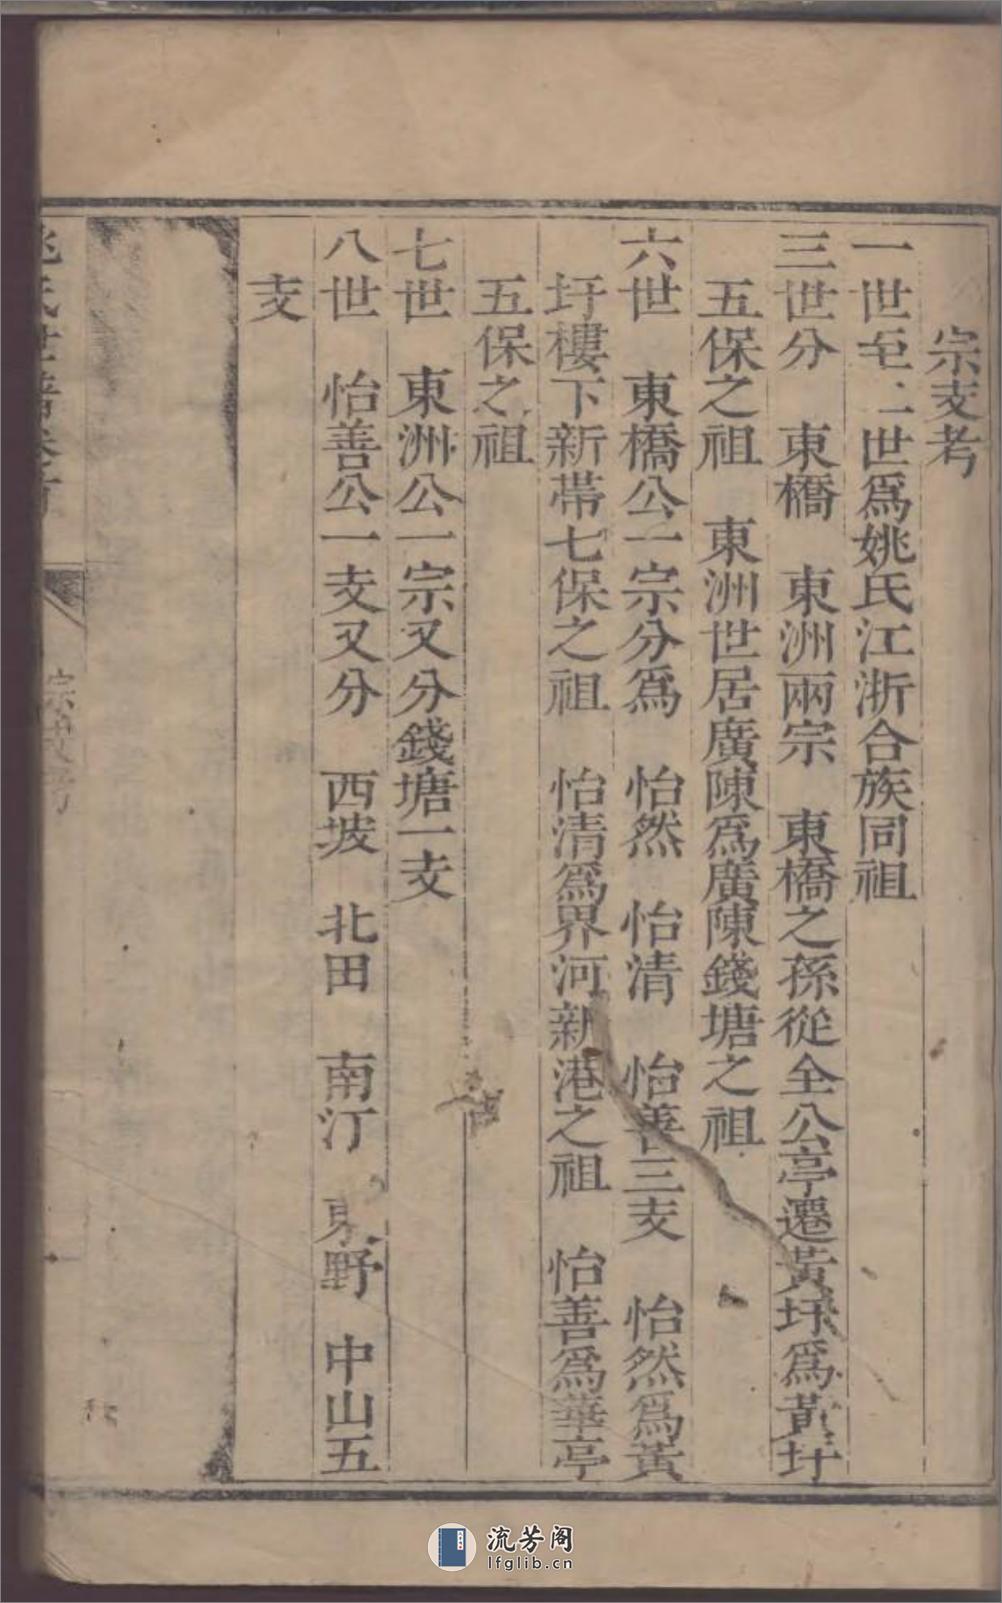 宗支考
一世至二世爲姚氏江浙合族同祖
三世分　東橋　東洲兩宗　東橋之孫從全公亭遷黃圩爲黃圩
五保之祖　東洲世居廣陳爲廣陳錢塘之祖
六世　東橋公一宗分爲　怡然　怡清　怡善三支　怡然爲黃
圩樓下新帶七保之祖　怡清爲界河新港之祖　怡善爲華亭
五保之祖
七世　東洲公一宗又分錢塘一支
八世　怡善公一支又分　西坡　北田　南汀　東野　中山五
支
姚氏世譜卷首
宗支考
流芳阁
lfglib.cn